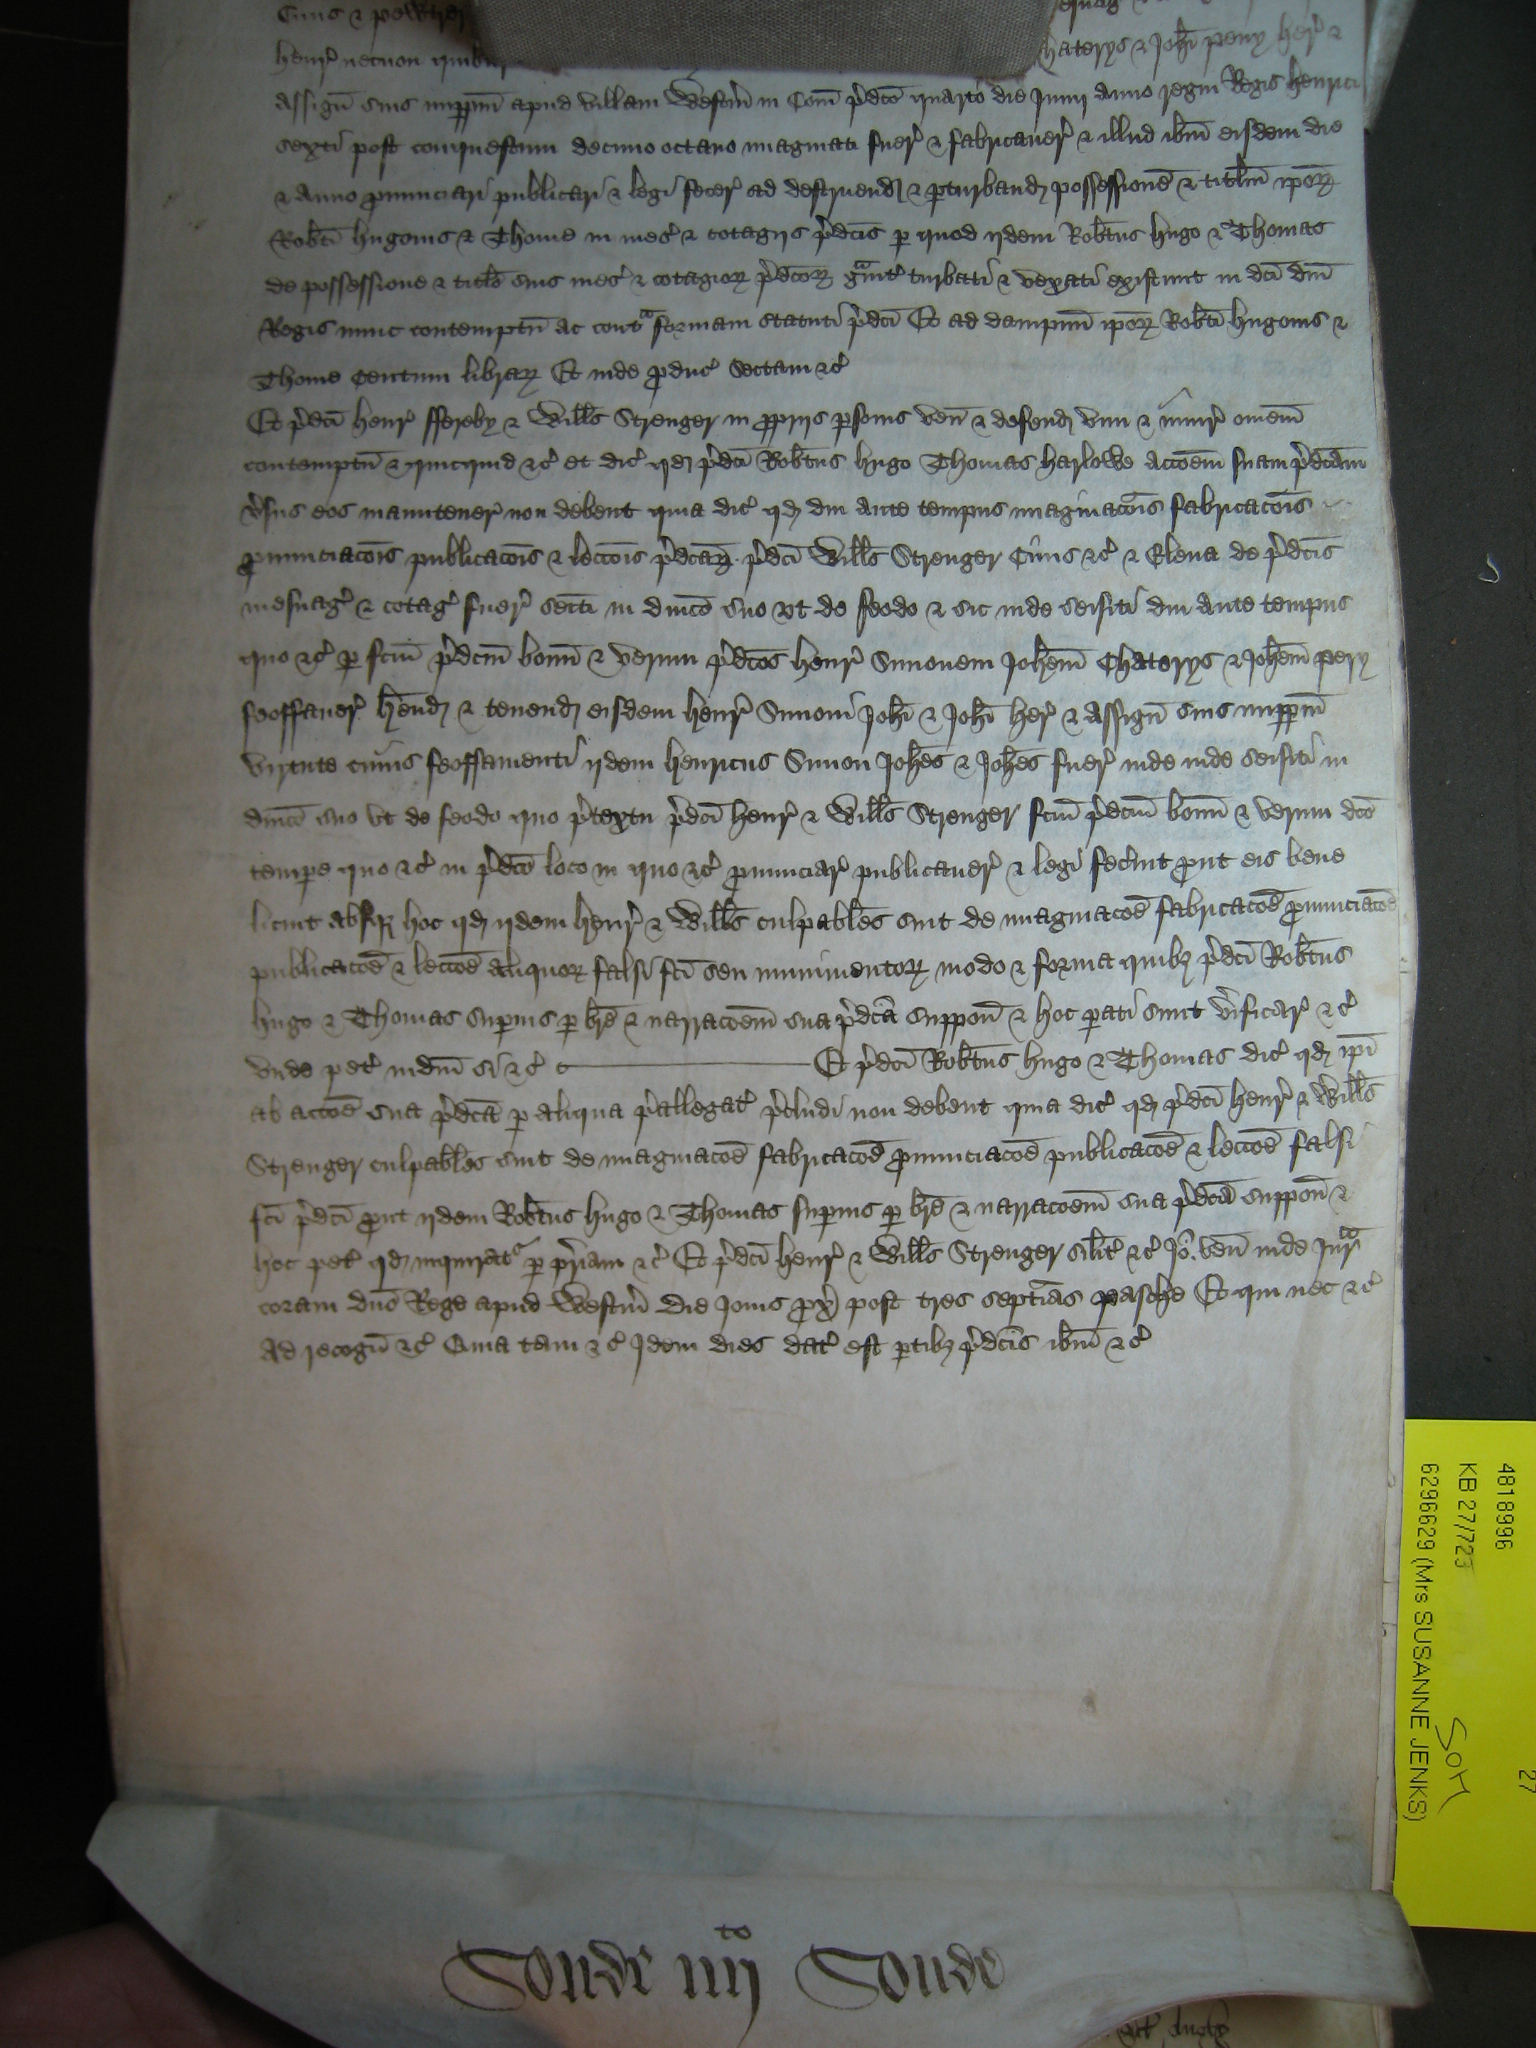 Ciuis & pewtrer
henr' necnon quibus hatorys & Joh'i pery her' &
assign' suis imppm apud villam Westm' in Com' p'dco quarto die Junij anno regni Regis henrici
sexti post conquestum decimo octauo ymaginati fuer' & fabricauer' & illud ibm eisdem die
& Anno pnunciari publicari & legi fecer' ad destruend' & pturband' possessione & titlm ipor'
Robti hugonis & Thome in mes' & cotagijs p'dcis p quod ijdem Robtus hugo & Thomas
de possessione & titlo suis mes' & cotagior' p'dcor' grauit' turbati & vexati existunt in dci dni
Regis nunc contemptu ac contra formam statuti p'dci Et ad dampnu ipor' Robti hugonis &
Thome Centum librar' Et inde pduc' sectam &c'
Et p'dci henr' ffereby & Wills Strenger in pprijs psonis ven' & defend' vim & iniur' omem
contemptu & quicquid &c' et dic' qd p'dci Robtus hugo Thomas harlowe Accoem suam p'dcam
v'sus eos manutener' non debent quia dic' qd diu ante tempus ymaginacois fabricacois
pnunciacois publicacois & leccois p'dcar' p'dci Wills Strenger Ciuis &c' & Elena de p'dcis
mesuag' & cotag' fuer' seiti in dnico suo vt de feodo & sic inde seisiti diu ante tempus
quo &c' p fcm p'dcm bonu & verum p'dcos henr' Simonem Johem Chatorys & Johem pery
feoffauer' hend' & tenend' eisdem henr' Simoni Johi & Johi her' & assign' suis imppm
virtute cuius feoffamenti ijdem henricus Simon Johes & Johes fuer' inde inde seisiti in
dnico suo vt de feodo quo p'textu p'dci henr' & Wills Strenger fcm p'dcm bonu & verum dco
tempe quo &c' in p'dco loco in quo &c' pnunciar' publicauer' & legi fecerut put eis bene
licuit absq' hoc qd ijdem henr' & Willus culpables sint de ymaginacoe fabricacoe pnunciacoe
publicacoe & leccoe aliquor' falsi fci seu munimentor' modo & forma quibz p'dci Robtus
hugo & Thomas supius p bre & narracoem sua p'dca suppon' & hoc pati sunt v'ificar' &c'
vnde pet' iudm si &c' Et p'dci Robtus hugo & Thomas dic' qd ipi
ab accoe sua p'dca p aliqua p'allegat' p'cludi non debent quia dic' qd p'dci henr' & Willus
Strenger culpables sint de ymaginacoe fabricacoe pnunciacoe publicacoe & leccoe falsi
fci p'dci put ijdem Robtus hugo & Thomas supius p bre & narracoem sua p'dca suppon' &
hoc pet' qd inquirat' p priam &c' Et p'dci henr' & Willus Strenger silit' &c' Io. ven' inde Jurata
coram dno Rege apud Westm' die Jouis px' post tres septias pasche Et qui nec &c'
Ad recogn' &c' Quia tam &c' Idem dies dat' est ptibz p'dcis ibm &c'
Conde iiij to Conde
4818996
KB 27/723
6296629 (Mrs SUSANNE JENKS)
27